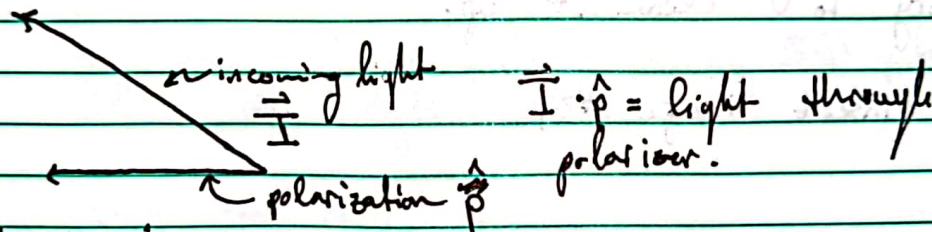 incoming light
I⃗
I⃗ · p̂ = light through
polarizer.
polarization p̂